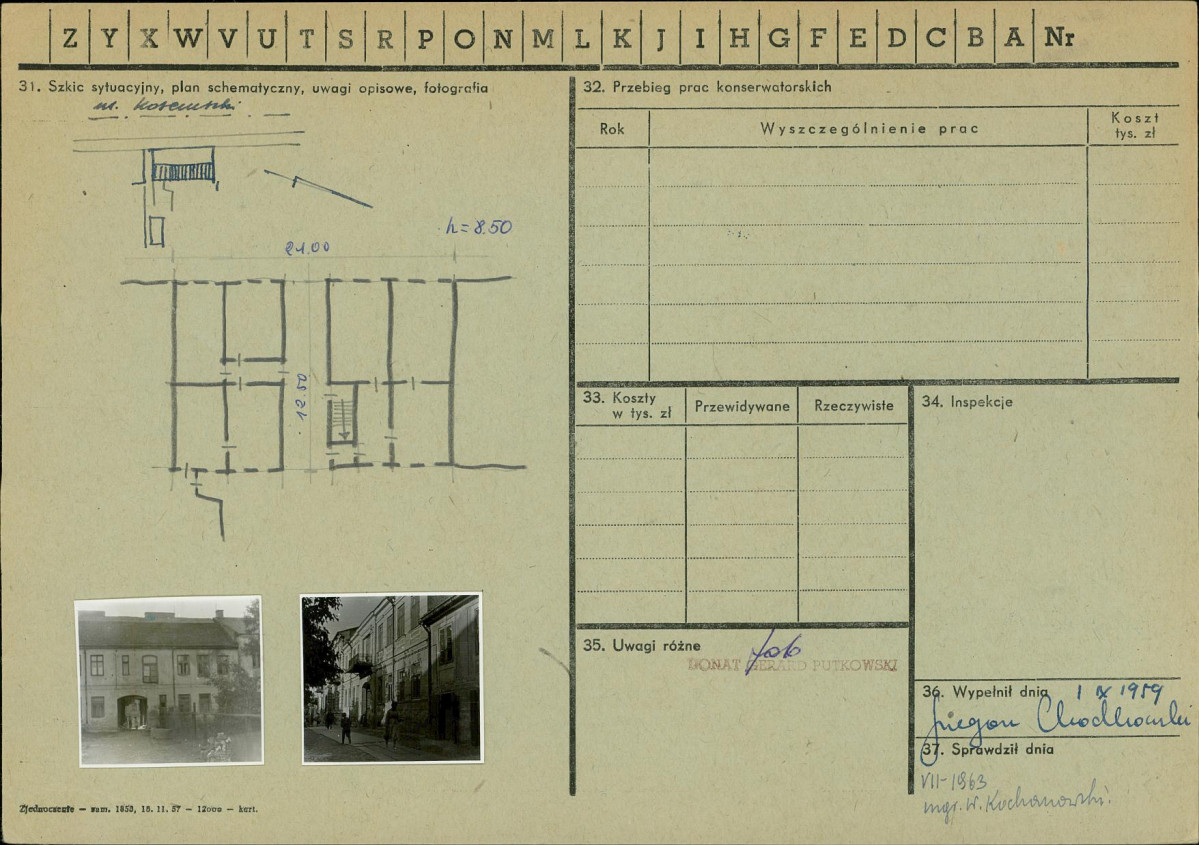 Z Y X W V U T S R P O N M L K J I H G F E D C B A Nr
31. Szkic sytuacyjny, plan schematyczny, uwagi opisowe, fotografia
ul. Kościuszki
h = 8.50
21.00
12.50
32. Przebieg prac konserwatorskich
Rok
Wyszczególnienie prac
Koszt
tys. zł
33. Koszty
w tys. zł
Przewidywane
Rzeczywiste
34. Inspekcje
35. Uwagi różne
fot
DONAT GERARD PUTKOWSKI
36. Wypełnił dnia 1 IX 1959
Chodkowski
37. Sprawdził dnia
VII-1963
mgr. W. Kochanowski.
Zjednoczenie — zam. 1853, 18. 11. 57 — 12000 — kart.